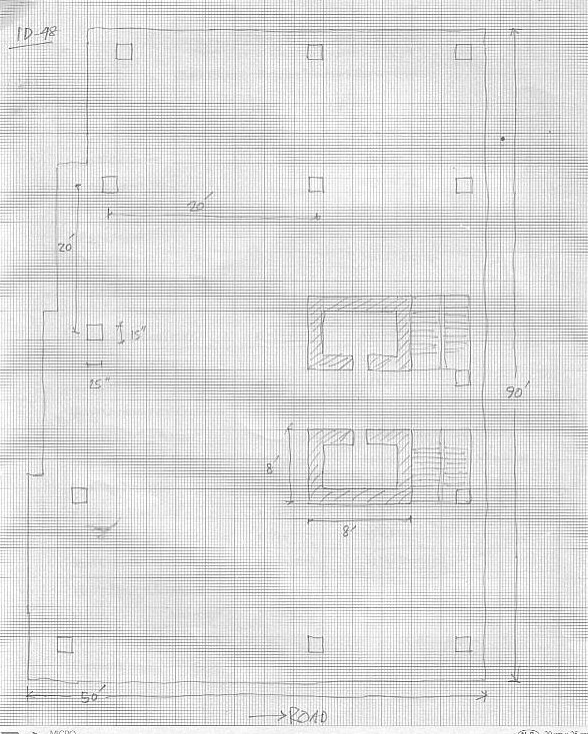 ID-98
20'
20'
15"
15"
90'
8'
8'
50'
→ROAD